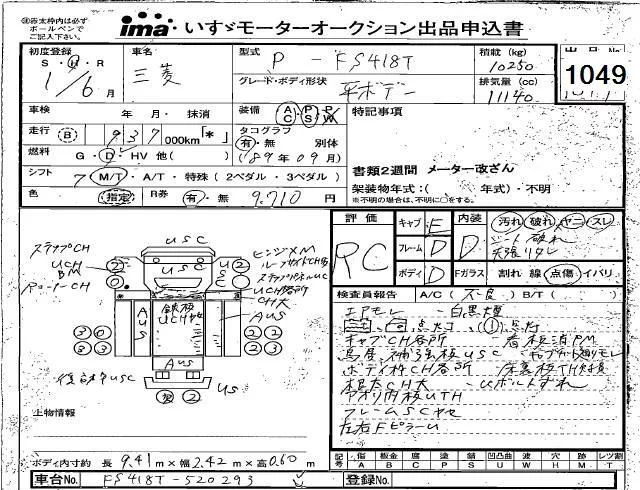 ㊟赤太枠内は必ず
ボールペンで
ご記入下さい。
ima いすゞモーターオークション出品申込書
初度登録 S・H・R 1/6月
車名 三菱
型式 P-FS418T
積載 (kg) 10250
グレード・ボディ形状 平ボデー
排気量 (cc) 11140
出品No.
1049
車検 年 月・抹消
装備 AC PS PW
特記事項
走行 B 937 000km「*」
タコグラフ 有・無 別体
燃料 G・D・HV 他( )
('89年09月)
書類2週間 メーター改ざん
シフト 7 M/T・A/T・特殊 (2ペダル・3ペダル)
架装物年式:( 年式)・不明
※不明の場合は、不明に○をする。
色 指定 R券 有・無 9,710円
評価 RC
キャブ E
フレーム D
ボディ D
内装 D 汚れ 破れ ヤニ スレ
シート破れ
Fガラス 割れ 線 点傷 イバリ
検査員報告 A/C(不良) B/T( )
エアモレ - 白黒煙
キャブCH各所
鳥居、補強板USC
ボディ枠CH各所 - 床裏板TH
根太CH大 - Uボルトずれ
アオリ内板UTH
フレームSCサビ
左右FピラーU
ステップCH
UCH
BM
USC
USC
ヒンジXM
UCH各所
CH大
AUS
AUS
鉄板
UCHサビ
AUS
US
上物情報
ボディ内寸約 長 9.41m×幅 2.42m×高 0.60m
記号 傷 板金 腐 塗 錆 凹凸曲 波 穴 跡 レツ割
A B C P S U W H M T
車台No. FS418T-520293
登録No.